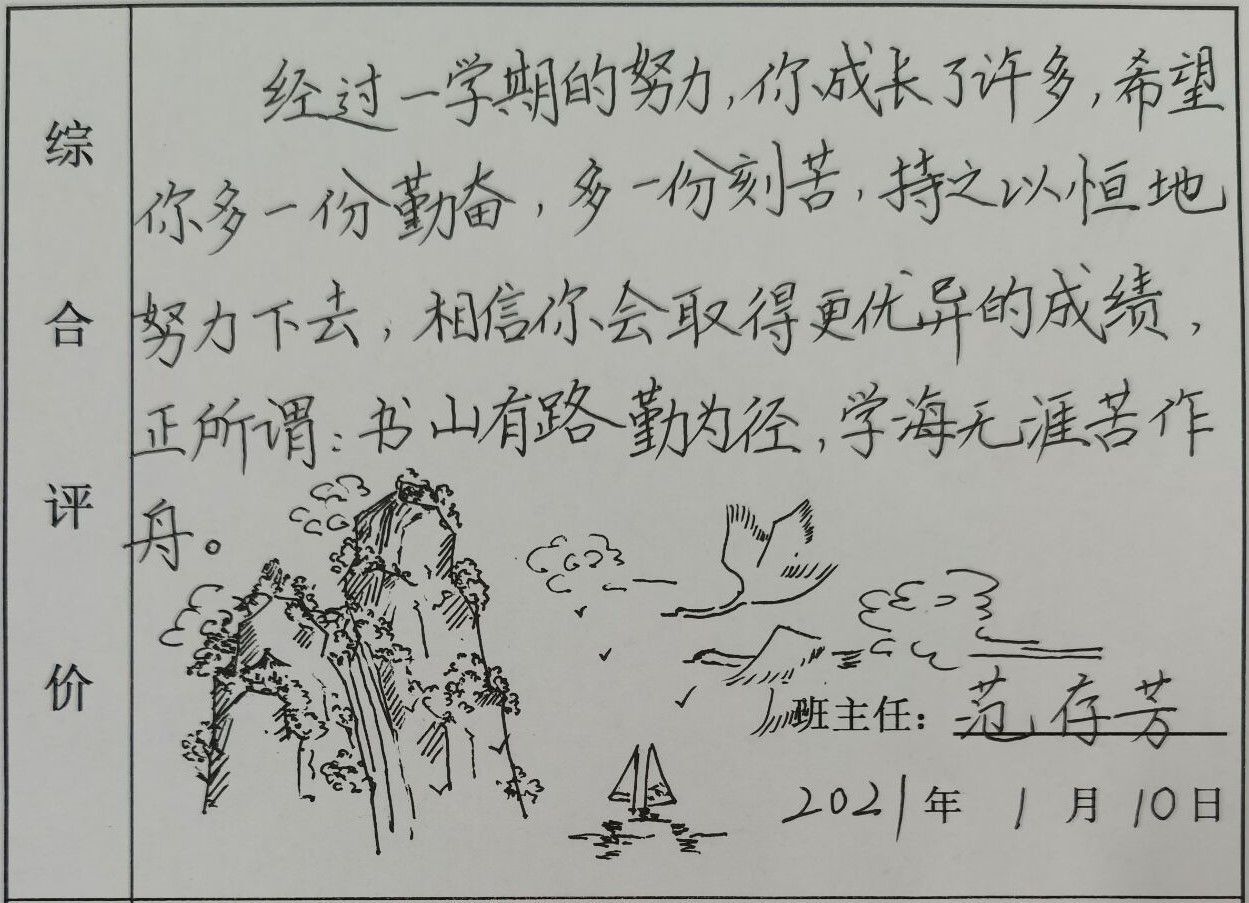 综合评价
经过一学期的努力,你成长了许多,希望
你多一份勤奋,多一份刻苦,持之以恒地
努力下去,相信你会取得更优异的成绩,
正所谓:书山有路勤为径,学海无涯苦作
舟。
班主任:范存芳
2021年 1月10日